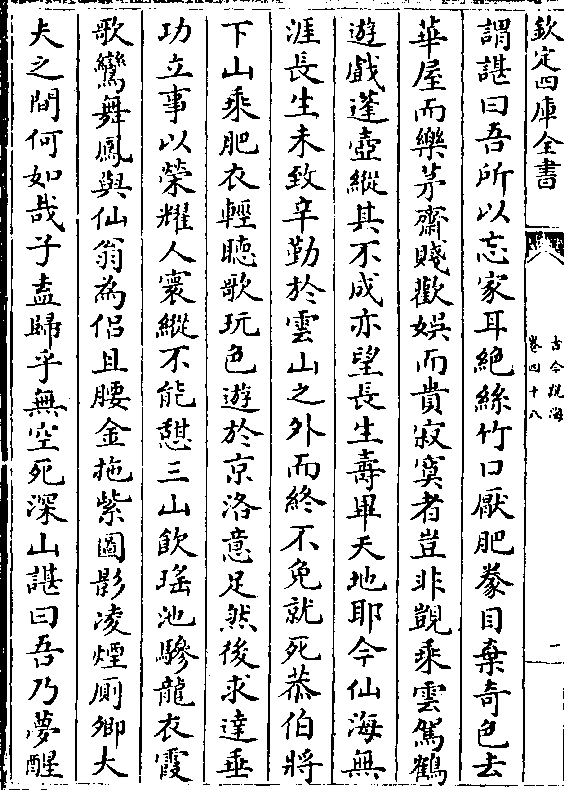 欽定四庫全書
古今說海
卷四十八
二
謂諶曰吾所以忘家耳絶絲竹口厭肥豢目棄奇色去
華屋而樂茅齋賤歡娛而貴寂寞者豈非覬乘雲駕鶴
遊戲蓬壺縱其不成亦望長生壽畢天地耶今仙海無
涯長生未致辛勤於雲山之外而終不免就死恭伯將
下山乘肥衣輕聽歌玩色遊於京洛意足然後求達垂
功立事以榮耀人寰縱不能憇三山飲瑤池驂龍衣霞
歌鸞舞鳳與仙翁為侣且腰金拖紫圖影凌煙厠卿大
夫之間何如哉子盍歸乎無空死深山諶曰吾乃夢醒